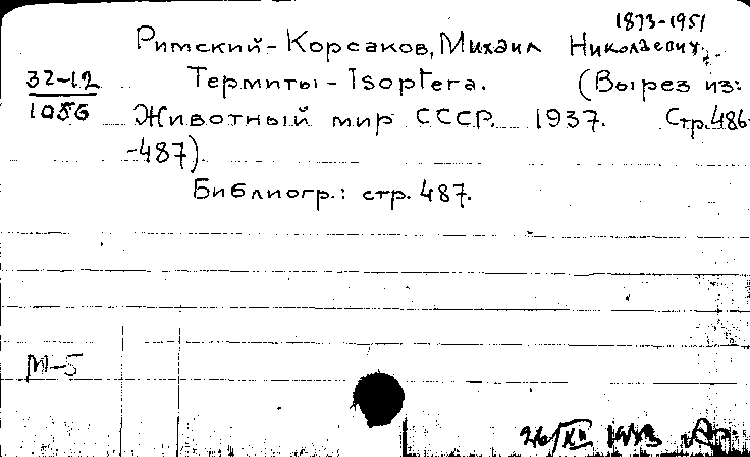 1873-1951
Римский-Корсаков, Михаил Николаевич.
32-12 Термиты - Isoptera. (Вырез из:
1086 Животный мир СССР. 1937. Стр. 486-
-487).
Библиогр.: стр. 487.
М-5
26/XII